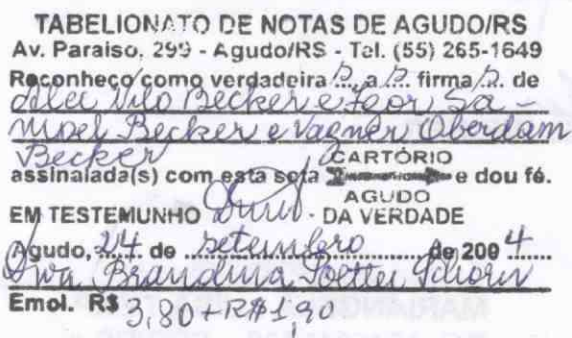 TABELIONATO DE NOTAS DE AGUDO/RS
Av. Paraiso, 299 - Agudo/RS - Tel. (55) 265-1649
Reconheço como verdadeira s a s firma s de
Nilo Becker e Igor Sa-
muel Becker e Vagner Oberdam
Becker
CARTÓRIO
assinalada(s) com esta seta e dou fé.
AGUDO
EM TESTEMUNHO DA VERDADE
Agudo, 24 de setembro de 2004
Brandina Schorn
Emol. R$ 3,80 + R$ 1,90